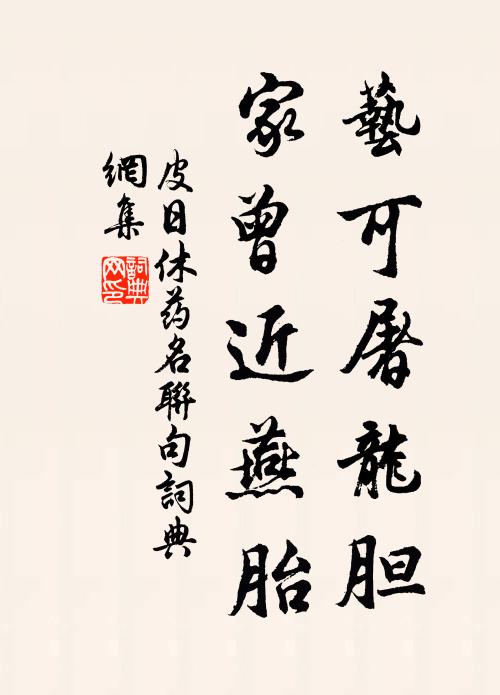 藝可屠龍胆
家曾近燕胎
皮日休药名聯句詞典
網集
詞典網印